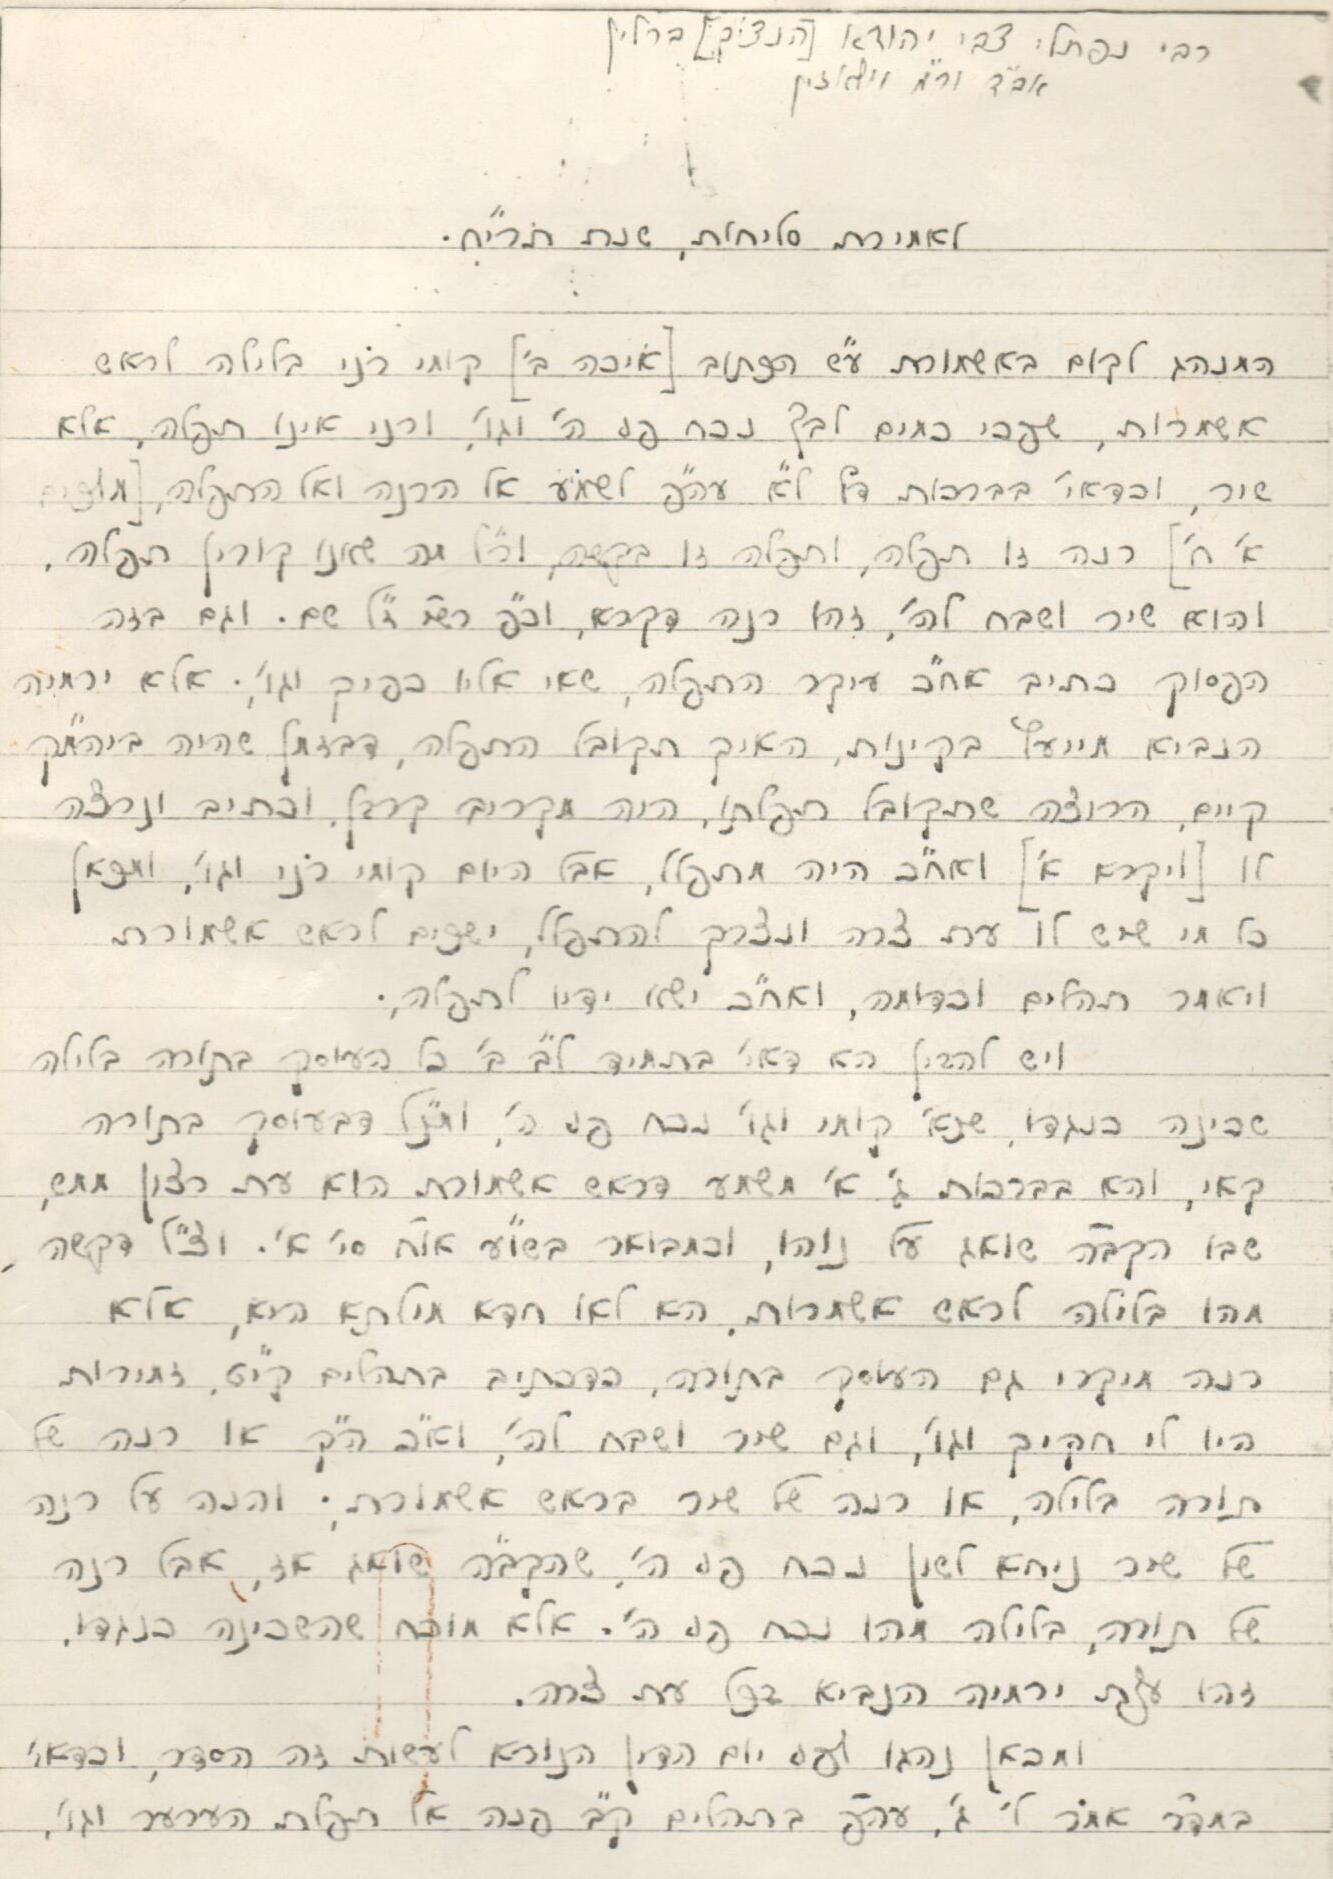 רבי נפתלי צבי יהודא [הנצי"ב] ברלין
אב"ד ור"מ וואלאזין
לאמירת סליחות, שנת תרי"ח.
המנהג לקום באשמורת ע"ש הכתוב [איכה ב'] קומי רני בלילה לראש
אשמרות, שפכי כמים לבך נכח פני ה' וגו', ורני אינו תפלה, אלא
שיר, וכדאי' בברכות דף ל"א עה"פ לשמע אל הרנה ואל התפלה, [מלכים
א' ח'] רנה זו תפלה, ותפלה זו בקשה, ור"ל מה שאנו קורין תפלה,
והוא שיר ושבח לה', זהו רנה דקרא, וכ"פ רש"י ז"ל שם. וגם בזה
הפסוק כתיב אח"כ עיקר התפלה, שאי אליו כפיך וגו', אלא ירמיה
הנביא מייעץ בקינות, האיך תקובל התפלה, דבזמן שהיה ביהמ"ק
קיים, הרוצה שתקובל תפלתו, היה מקריב קרבן, וכתיב ונרצה
לו [ויקרא א'] ואח"כ היה מתפלל, אבל היום קומי רני וגו', ומכאן
כל מי שיש לו עת צרה ונצרך להתפלל, ישכים לראש אשמורת
ויאמר תהלים וכדומה, ואח"כ ישא ידיו לתפלה.
ויש להבין הא דאי' בתמיד ל"ב ב' כל העוסק בתורה בלילה
שכינה כנגדו, שנא' קומי וגו' נכח פני ה', ומנ"ל דבעוסק בתורה
קאי, והא בברכות ג' א' משמע דראש אשמורת הוא עת רצון ממש,
שבו הקב"ה שואג על נוהו, וכמבואר בשו"ע או"ח סי' א'. וצ"ל דקשה
מהו בלילה לראש אשמרות, הא לאו חדא מילתא היא, אלא
רנה מיקרי גם העוסק בתורה, כדכתיב בתהלים קי"ט, זמירות
היו לי חקיך וגו', וגם שיר ושבח לה', וא"כ ה"ק או רנה של
תורה בלילה, או רנה של שיר בראש אשמורת, והנה על רנה
של שיר ניחא לשון נכח פני ה', שהקב"ה שואג אז, אבל רנה
של תורה, בלילה מהו נכח פני ה'. אלא מוכח שהשכינה כנגדו,
זהו עצת ירמיה הנביא בכל עת צרה.
ומכאן נהגו לפני יום הדין הנורא לעשות זה הסדר, וכדאי'
במדר' אמור ל' ג', עה"פ בתהלים ק"ב פנה אל תפלת הערער וגו',